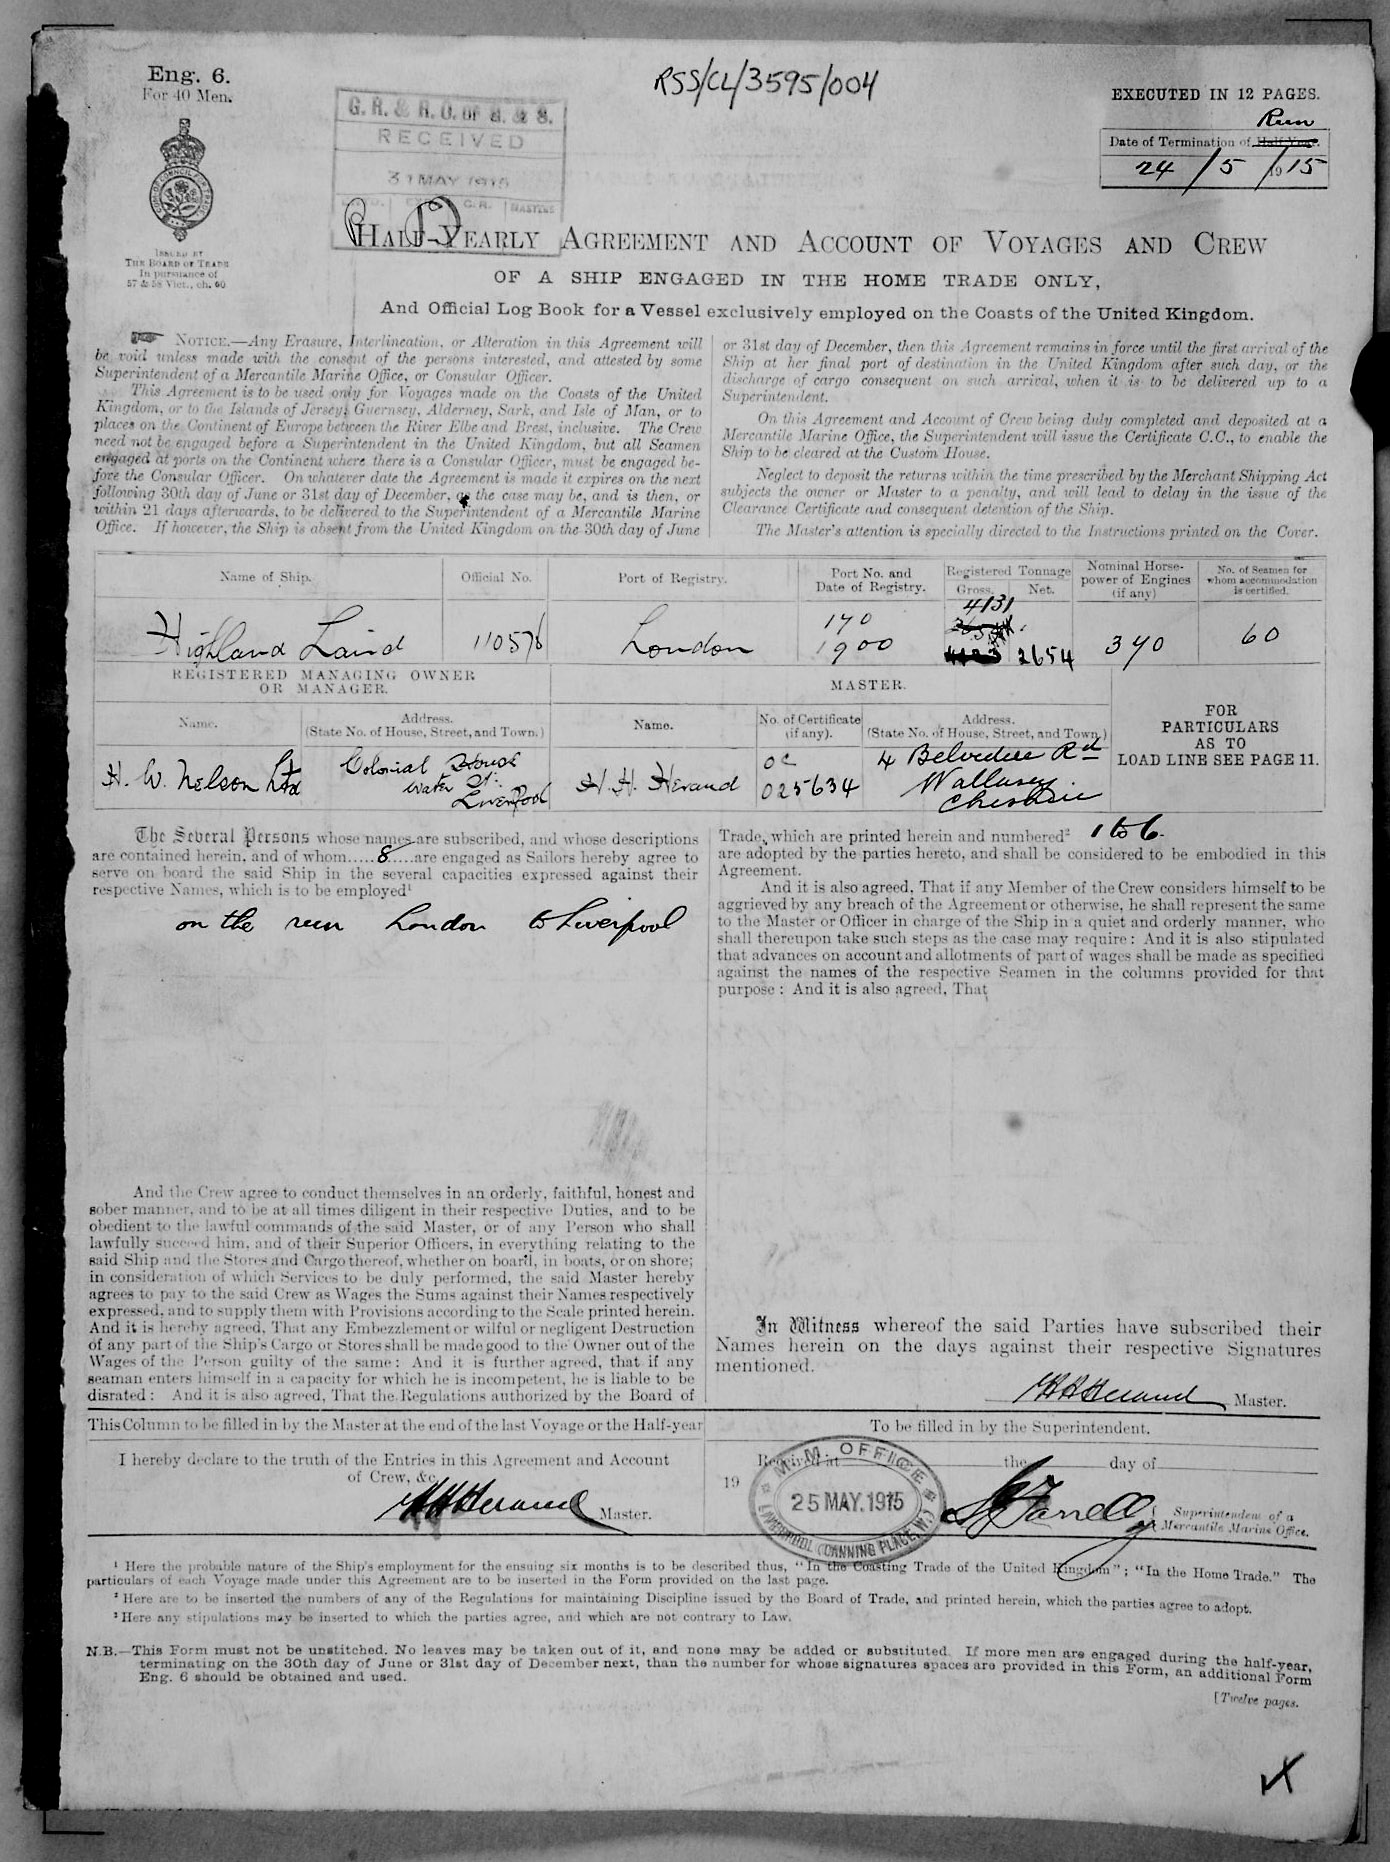 Eng. 6.
For 40 Men.
RSS/CL/3595/004
EXECUTED IN 12 PAGES.
Run
Date of Termination of Half-Year.
24/5/1915
G. R. & R. O. OF S. & S.
RECEIVED
31 MAY 1915
C.R. MASTERS
ISSUED BY
THE BOARD OF TRADE
In pursuance of
57 & 58 Vict., ch. 60
HALF-YEARLY AGREEMENT AND ACCOUNT OF VOYAGES AND CREW
OF A SHIP ENGAGED IN THE HOME TRADE ONLY,
And Official Log Book for a Vessel exclusively employed on the Coasts of the United Kingdom.
NOTICE.—Any Erasure, Interlineation, or Alteration in this Agreement will
be void unless made with the consent of the persons interested, and attested by some
Superintendent of a Mercantile Marine Office, or Consular Officer.
This Agreement is to be used only for Voyages made on the Coasts of the United
Kingdom, or to the Islands of Jersey, Guernsey, Alderney, Sark, and Isle of Man, or to
places on the Continent of Europe between the River Elbe and Brest, inclusive. The Crew
need not be engaged before a Superintendent in the United Kingdom, but all Seamen
engaged at ports on the Continent where there is a Consular Officer, must be engaged be-
fore the Consular Officer. On whatever date the Agreement is made it expires on the next
following 30th day of June or 31st day of December, as the case may be, and is then, or
within 21 days afterwards, to be delivered to the Superintendent of a Mercantile Marine
Office. If however, the Ship is absent from the United Kingdom on the 30th day of June
or 31st day of December, then this Agreement remains in force until the first arrival of the
Ship at her final port of destination in the United Kingdom after such day, or the
discharge of cargo consequent on such arrival, when it is to be delivered up to a
Superintendent.
On this Agreement and Account of Crew being duly completed and deposited at a
Mercantile Marine Office, the Superintendent will issue the Certificate C.C., to enable the
Ship to be cleared at the Custom House.
Neglect to deposit the returns within the time prescribed by the Merchant Shipping Act
subjects the owner or Master to a penalty, and will lead to delay in the issue of the
Clearance Certificate and consequent detention of the Ship.
The Master's attention is specially directed to the Instructions printed on the Cover.
Name of Ship. Official No. Port of Registry. Port No. and Date of Registry. Registered Tonnage Gross. Net. Nominal Horse-power of Engines (if any) No. of Seamen for whom accommodation is certified.
Highland Laird 110576 London 170 1900 4131 2654 370 60
REGISTERED MANAGING OWNER
OR MANAGER.
MASTER.
FOR
PARTICULARS
AS TO
LOAD LINE SEE PAGE 11.
Name. Address. (State No. of House, Street, and Town.) Name. No. of Certificate (if any). Address. (State No. of House, Street, and Town.)
H. W. Nelson Ltd Colonial House Water St: Liverpool H. H. Heraud OC 025634 4 Belvedere Rd Wallasey Cheshire
The Several Persons whose names are subscribed, and whose descriptions
are contained herein, and of whom.....8....are engaged as Sailors hereby agree to
serve on board the said Ship in the several capacities expressed against their
respective Names, which is to be employed¹
on the run London to Liverpool
And the Crew agree to conduct themselves in an orderly, faithful, honest and
sober manner, and to be at all times diligent in their respective Duties, and to be
obedient to the lawful commands of the said Master, or of any Person who shall
lawfully succeed him, and of their Superior Officers, in everything relating to the
said Ship and the Stores and Cargo thereof, whether on board, in boats, or on shore;
in consideration of which Services to be duly performed, the said Master hereby
agrees to pay to the said Crew as Wages the Sums against their Names respectively
expressed, and to supply them with Provisions according to the Scale printed herein.
And it is hereby agreed, That any Embezzlement or wilful or negligent Destruction
of any part of the Ship's Cargo or Stores shall be made good to the Owner out of the
Wages of the Person guilty of the same: And it is further agreed, that if any
seaman enters himself in a capacity for which he is incompetent, he is liable to be
disrated: And it is also agreed, That the Regulations authorized by the Board of
Trade, which are printed herein and numbered² 1 to 6.
are adopted by the parties hereto, and shall be considered to be embodied in this
Agreement.
And it is also agreed, That if any Member of the Crew considers himself to be
aggrieved by any breach of the Agreement or otherwise, he shall represent the same
to the Master or Officer in charge of the Ship in a quiet and orderly manner, who
shall thereupon take such steps as the case may require: And it is also stipulated
that advances on account and allotments of part of wages shall be made as specified
against the names of the respective Seamen in the columns provided for that
purpose: And it is also agreed, That
In Witness whereof the said Parties have subscribed their
Names herein on the days against their respective Signatures
mentioned.
H H Heraud Master.
This Column to be filled in by the Master at the end of the last Voyage or the Half-year
I hereby declare to the truth of the Entries in this Agreement and Account
of Crew, &c.
H H Heraud Master.
To be filled in by the Superintendent.
Received at the day of
19
M. M. OFFICE
25 MAY. 1915
LIVERPOOL (CANNING PLACE, W.)
Farrell
Superintendent of a
Mercantile Marine Office.
¹ Here the probable nature of the Ship's employment for the ensuing six months is to be described thus, "In the Coasting Trade of the United Kingdom"; "In the Home Trade." The
particulars of each Voyage made under this Agreement are to be inserted in the Form provided on the last page.
² Here are to be inserted the numbers of any of the Regulations for maintaining Discipline issued by the Board of Trade, and printed herein, which the parties agree to adopt.
³ Here any stipulations may be inserted to which the parties agree, and which are not contrary to Law.
N.B.—This Form must not be unstitched. No leaves may be taken out of it, and none may be added or substituted. If more men are engaged during the half-year,
terminating on the 30th day of June or 31st day of December next, than the number for whose signatures spaces are provided in this Form, an additional Form
Eng. 6 should be obtained and used.
[Twelve pages.